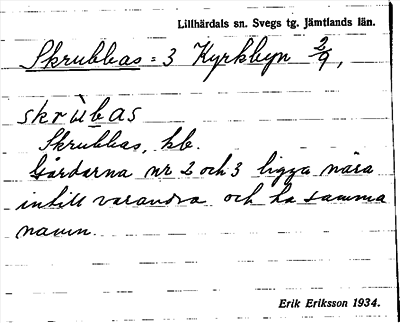 Lillhärdals sn. Svegs tg. Jämtlands län.
Skrubbas = 3 Kyrkbyn 2/9,
skrùbas
Skrubbas, hb.
Gårdarna nr 2 och 3 ligga nära
intill varandra och ha samma
namn.
Erik Eriksson 1934.